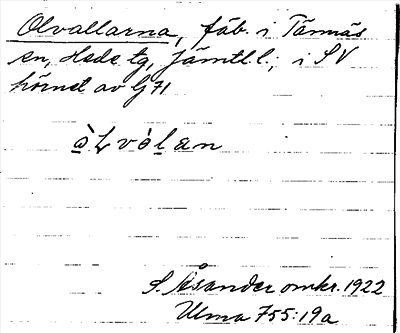 Olvallarna, fäb. i Tännäs
sn, Hede tg, Jämtl.l.; i SV
hörnet av G 71
ὰLvòlan
S. Åsander omkr. 1922
Ulma 755:19a